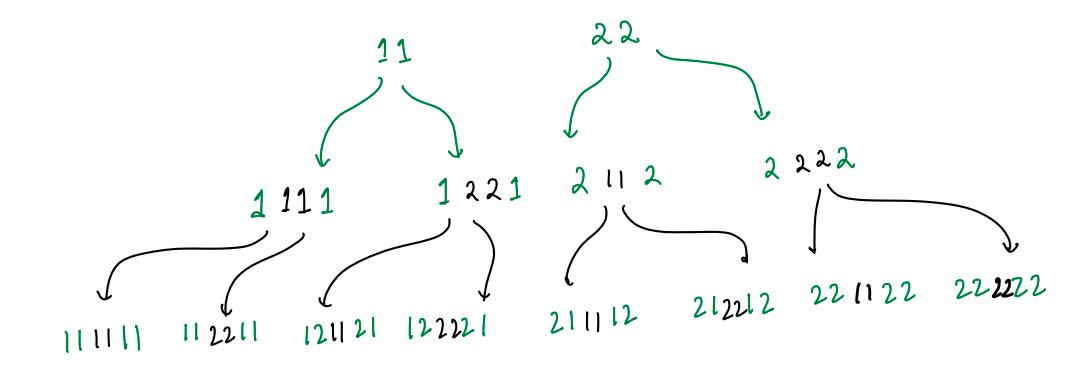 11 22
1 111 1221 2 11 2 2 222
111111 112211 121121 122221 211112 212212 221122 222222